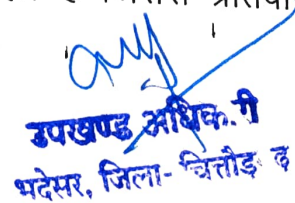 उपखण्ड अधिक.री
भदेसर, जिला- चित्तौड़ ढ़